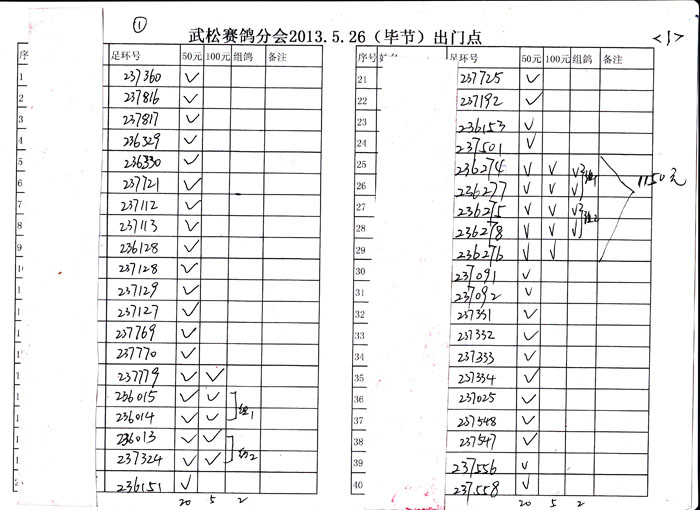 ①
武松赛鸽分会2013.5.26（毕节）出门点
<1>
序 足环号 50元 100元 组鸽 备注
1 237360 ✓
2 237816 ✓
3 237817 ✓
4 236329 ✓
5 236330 ✓
6 237721 ✓
7 237112 ✓
8 237113 ✓
9 236128 ✓
237128 ✓
1 237129 ✓
1 237127 ✓
1 237769 ✓
1 237770 ✓
1 237779 ✓ ✓
1 236015 ✓ ✓
1 236014 ✓ ✓ 组1
1 236013 ✓ ✓
1 237324 ✓ ✓ 组2
2 236151 ✓
20 5 2
序号 足环号 50元 100元 组鸽 备注
21 237725 ✓
22 237192 ✓
23 236153 ✓
24 237501 ✓
25 236274 ✓ ✓ ✓ 组1
26 236277 ✓ ✓ ✓
27 236275 ✓ ✓ ✓ 组2
28 236278 ✓ ✓ ✓
29 236276 ✓ ✓
1150元
30 237091 ✓
31 237092 ✓
32 237331 ✓
33 237332 ✓
34 237333 ✓
35 237334 ✓
36 237025 ✓
37 237548 ✓
38 237547 ✓
39 237556 ✓
40 237558 ✓
20 5 2